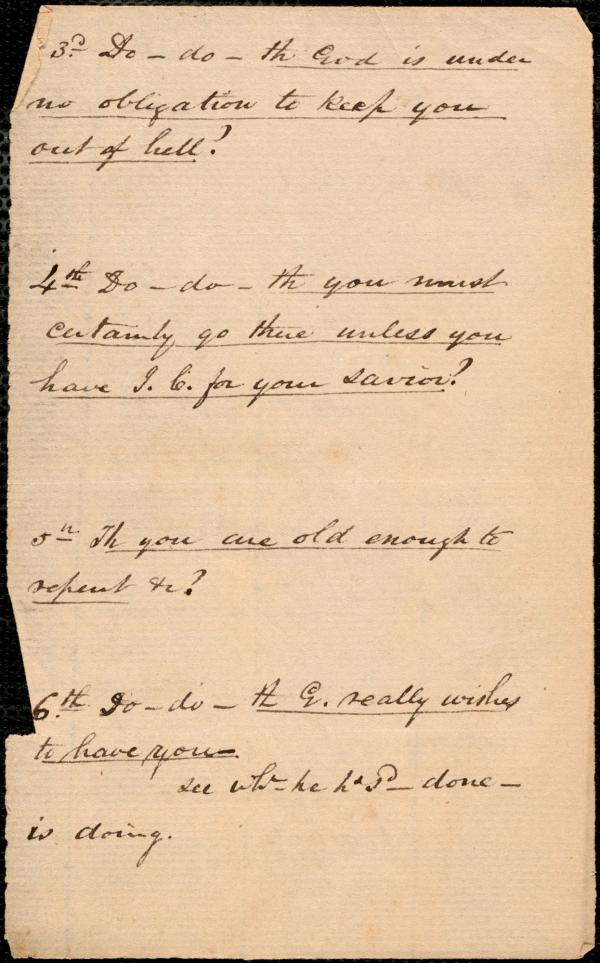 3d Do - do - th God is under
no obligation to keep you
out of hell?
4th Do - do - th you must
certainly go there unless you
have J. C. for your savior?
5th Th you are old enough to
repent &c?
6th Do - do - th G. really wishes
to have you -
see wh - he done -
is doing.